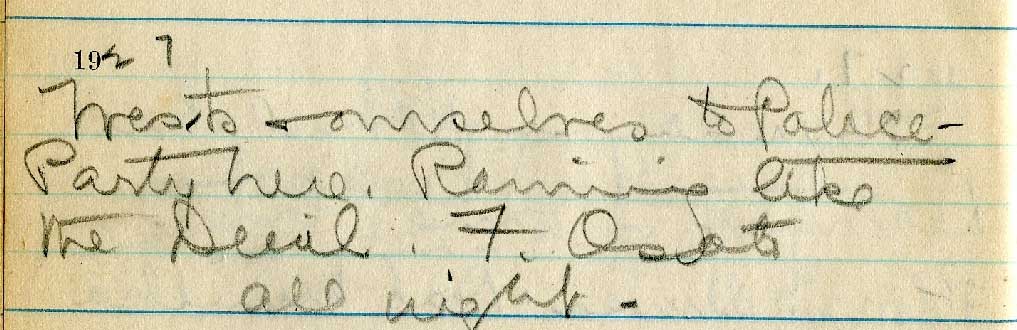 1927
Wests & ourselves to Police-
Party here. Raining like
the Devil. F.
all night -